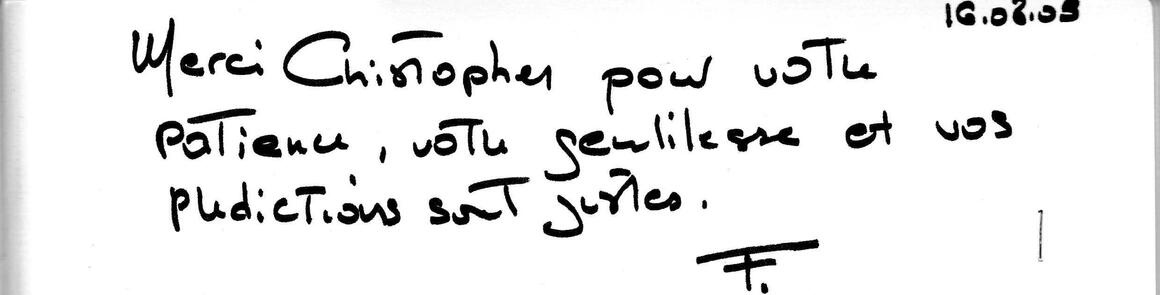 16.08.09
Merci Christopher pour votre
patience, votre gentillesse et vos
prédictions sont justes.
F.